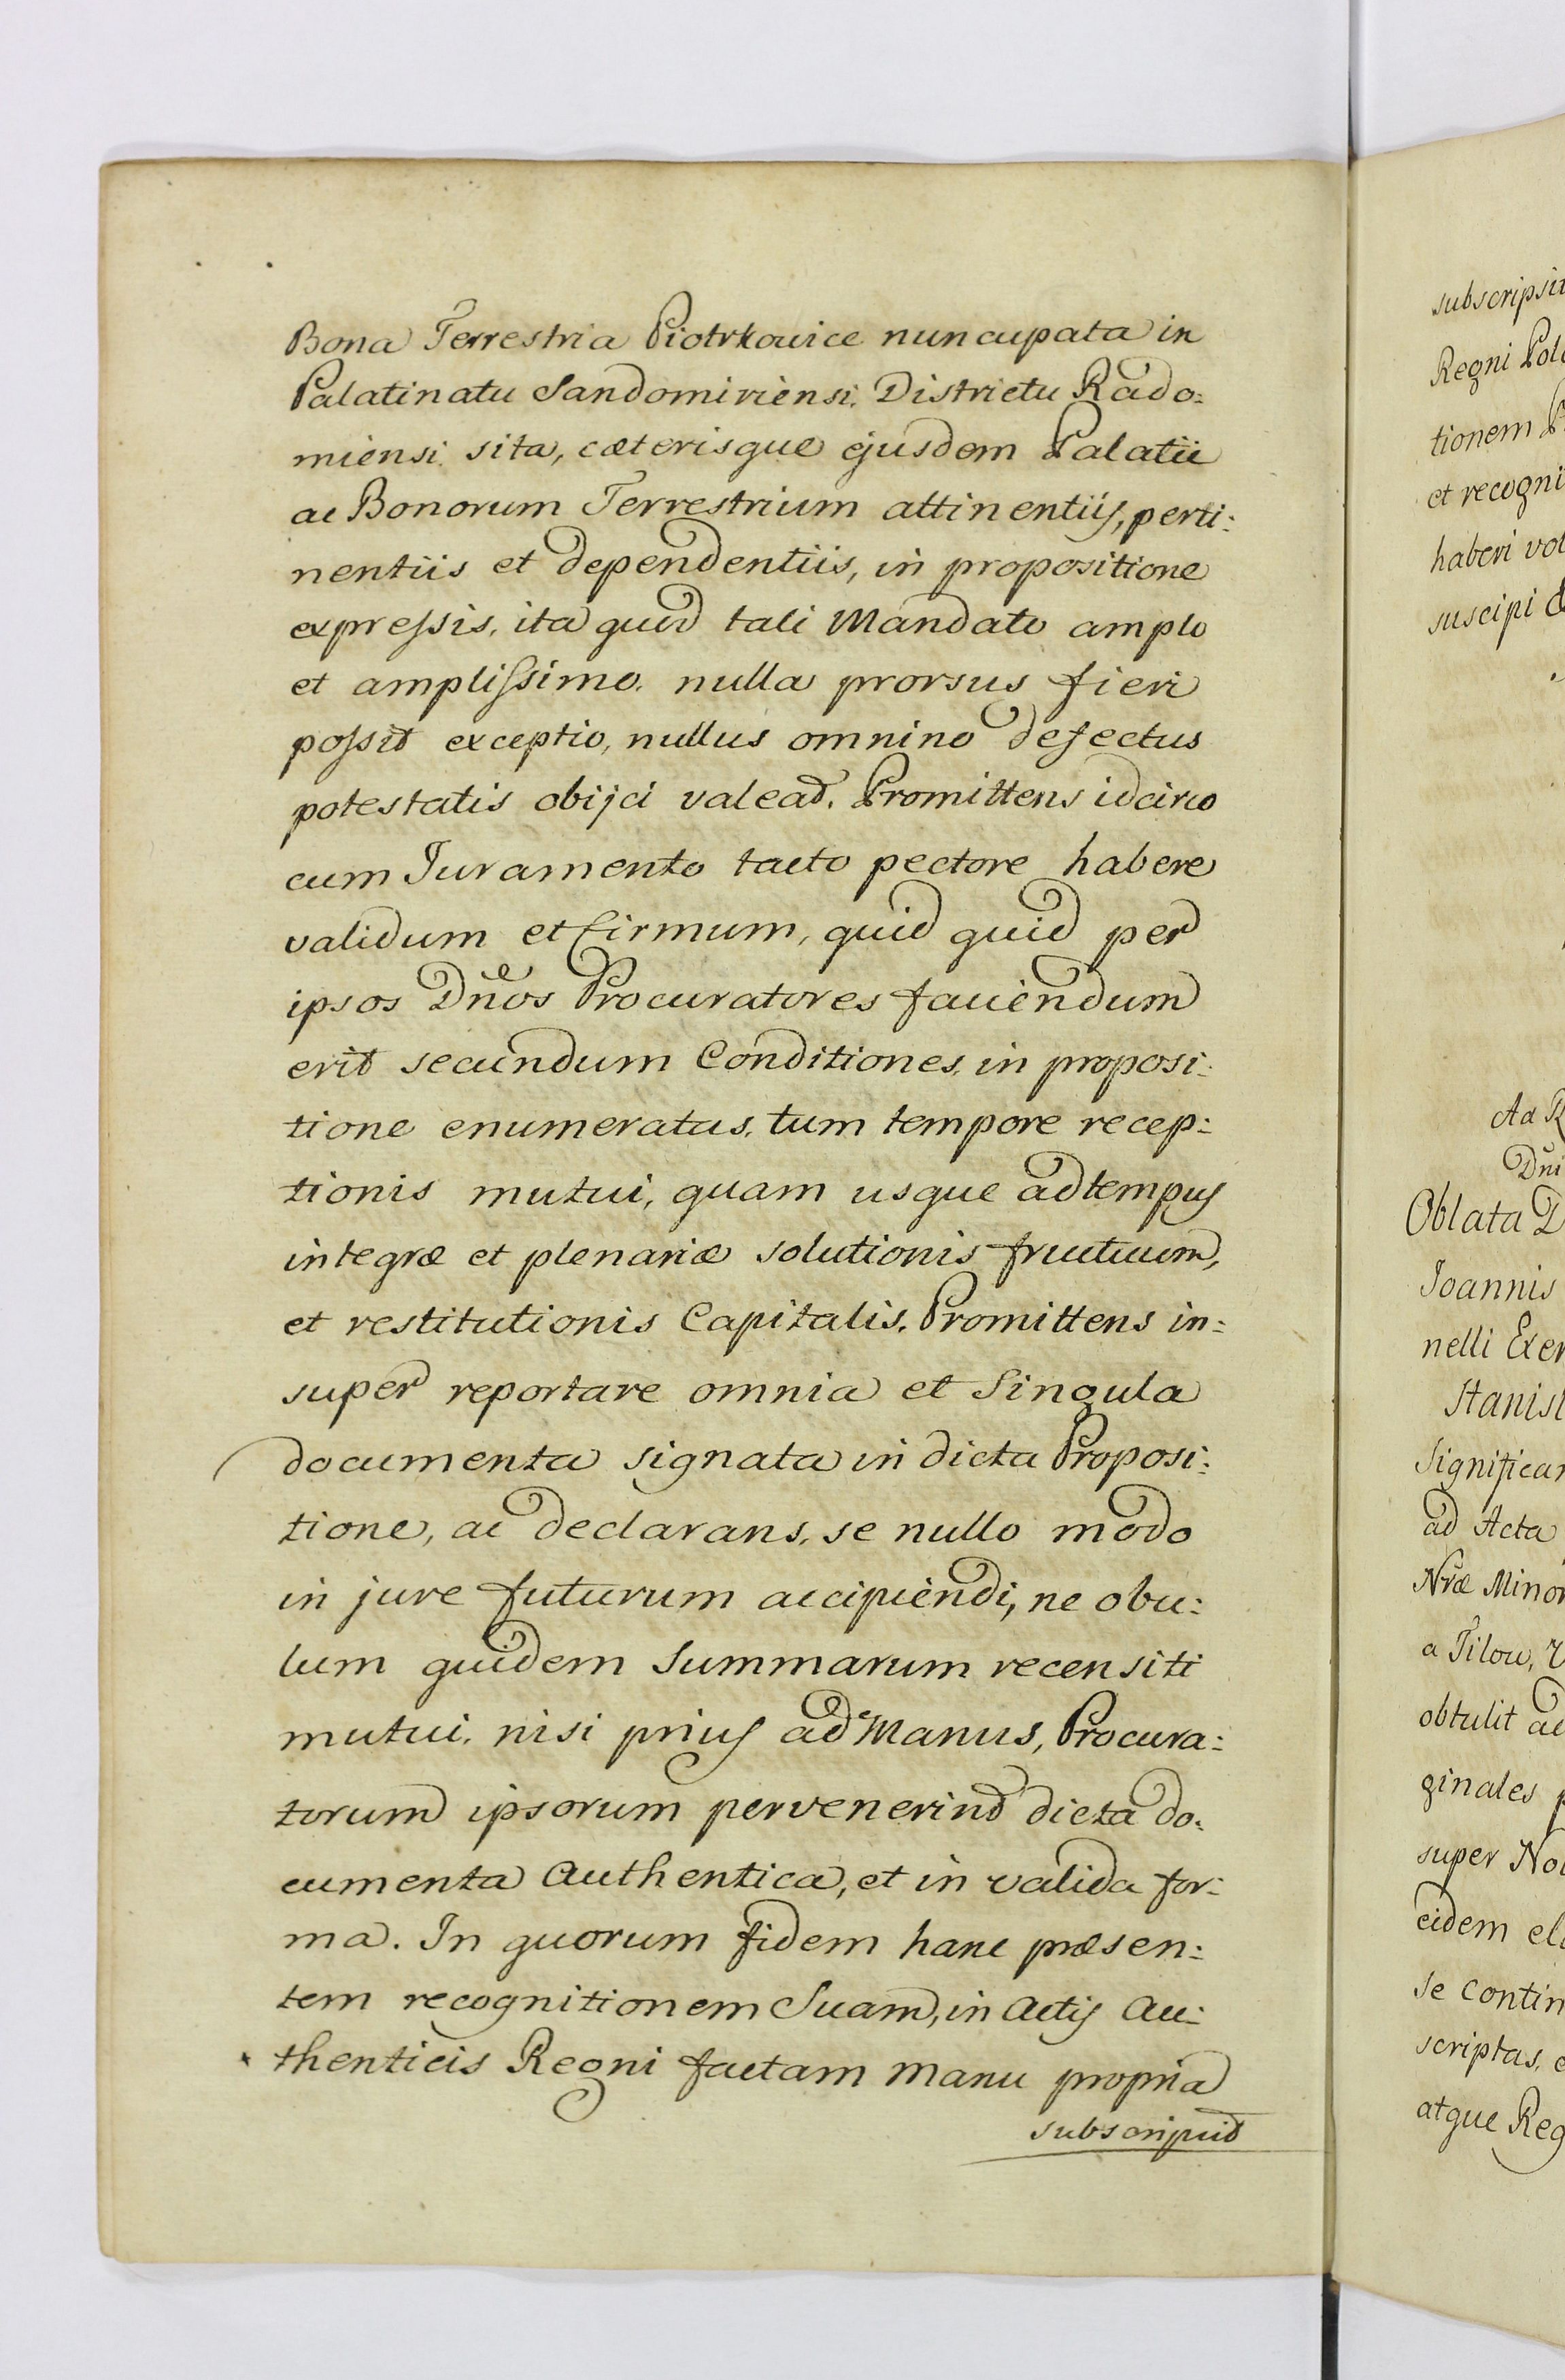 Bona Terrestria Piotrkowice nuncupata in
Palatinatu Sandomiriensi. Districtu Rado:
miensi sita, cæterisque ejusdem Palatii
ac Bonorum Terrestrium attinentiis, perti:
nentiis et dependentiis, in propositione
expressis, ita quod tali Mandato amplo
et amplissimo. nulla prorsus fieri
possit exceptio, nullus omnino defectus
potestatis obijci valeat. Promittens idcirco
cum Juramento tacto pectore habere
validum et firmum, quid quid per
ipsos Dños Procuratores faciendum
erit secundum Conditiones, in proposi:
tione enumeratas, tum tempore recep:
tionis mutui, quam usque ad tempus
integræ et plenariæ solutionis fructuum,
et restitutionis Capitalis. Promittens in:
super reportare omnia et Singula
documenta signata in dicta Proposi:
tione, ac declarans, se nullo modo
in jure futurum accipiendi, ne obu:
lum quidem Summarum recensiti
mutui, nisi prius ad Manus, Procura:
torum ipsorum pervenerint dicta do:
cumenta Authentica, et in valida for:
ma. In quorum fidem hanc præsen:
tem recognitionem Suam, in Actis Au:
thenticis Regni factam Manu propria
subscripsit
subscripsit
Regni Pol
tionem
et recogni
haberi vol
suscipi
Ad R
Dñi
Oblata D
Joannis
nelli Exer
Stanisl
Significan
ad Acta
Nræ Minor
a Tilou,
obtulit ac
ginales p
super No
eidem el
se contin
scriptas, e
atque Reg